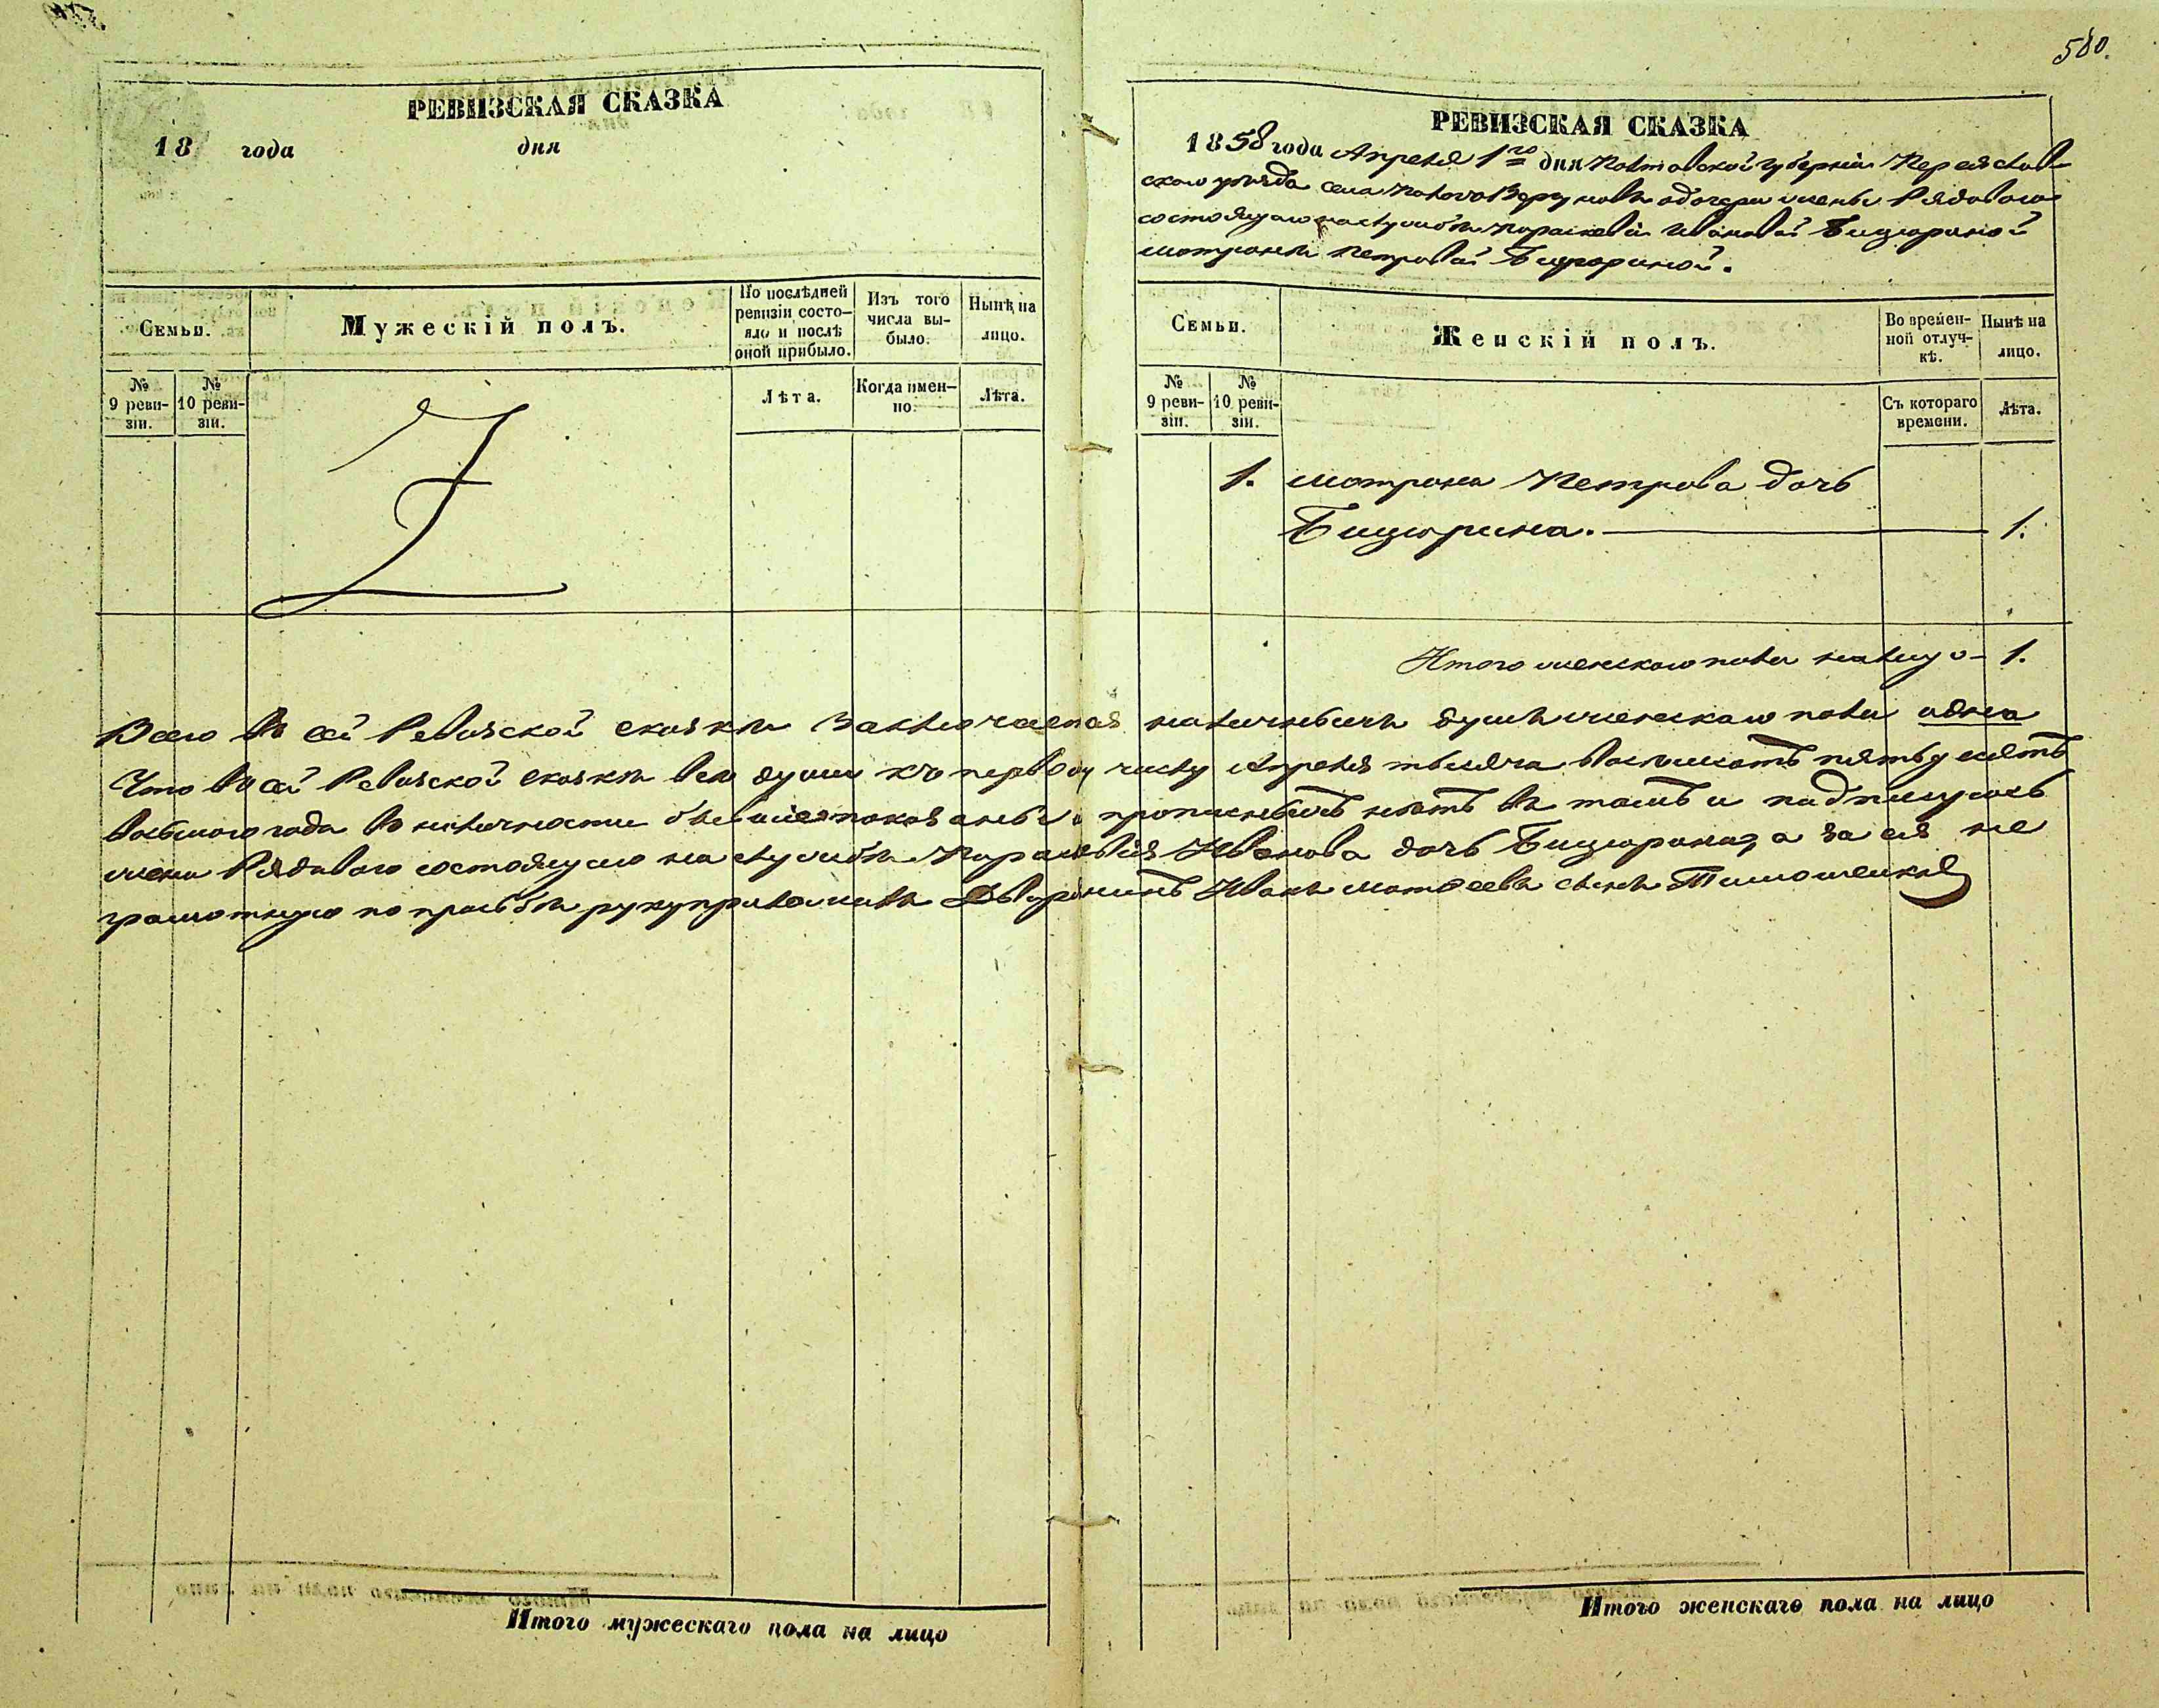 580.
РЕВИЗСКАЯ СКАЗКА
18 года дня
Семьи.
Мужескій полъ.
По послѣдней ревизіи состояло и послѣ оной прибыло.
Изъ того числа выбыло.
Нынѣ на лицо.
№ 9 ревизіи.
№ 10 ревизіи.
Лѣта.
Когда именно.
Лѣта.
РЕВИЗСКАЯ СКАЗКА
1858 года Апреля 1го дня Полтавской губерніи Переяслав
скаго уѣзда села дочери жены Рядоваго
состоящаго наслужбѣ Параскевіи Ивановой Бицюриной
мотроны Петровой Бицюриной.
Семьи.
Женскій полъ.
Во временной отлучкѣ.
Нынѣ на лицо.
№ 9 ревизіи.
№ 10 ревизіи.
Съ котораго времени.
Лѣта.
1. мотрона Петрова дочь
Бицюрина. 1.
Итого женскаго пола налицо 1.
Всего Въ сей Ревизской сказкѣ Заключается наличныхъ душъ женскаго пола одна
Что Въ сей Ревизской сказкѣ все души къ первому числу Апреля тысяча Восемьсотъ пятьдесятъ
Восьмого года Въ наличности бывшіе показаны и прописныхъ нѣтъ Въ томъ и подписуюсь
жена Рядоваго состоящаго на службѣ Параскевія Иванова дочь Бицюрина, а за ея не
грамотную по просьбѣ руку приложилъ Дворянинъ Иванъ матвеевъ сынъ Тимошенко
Итого мужескаго пола на лицо
Итого женскаго пола на лицо